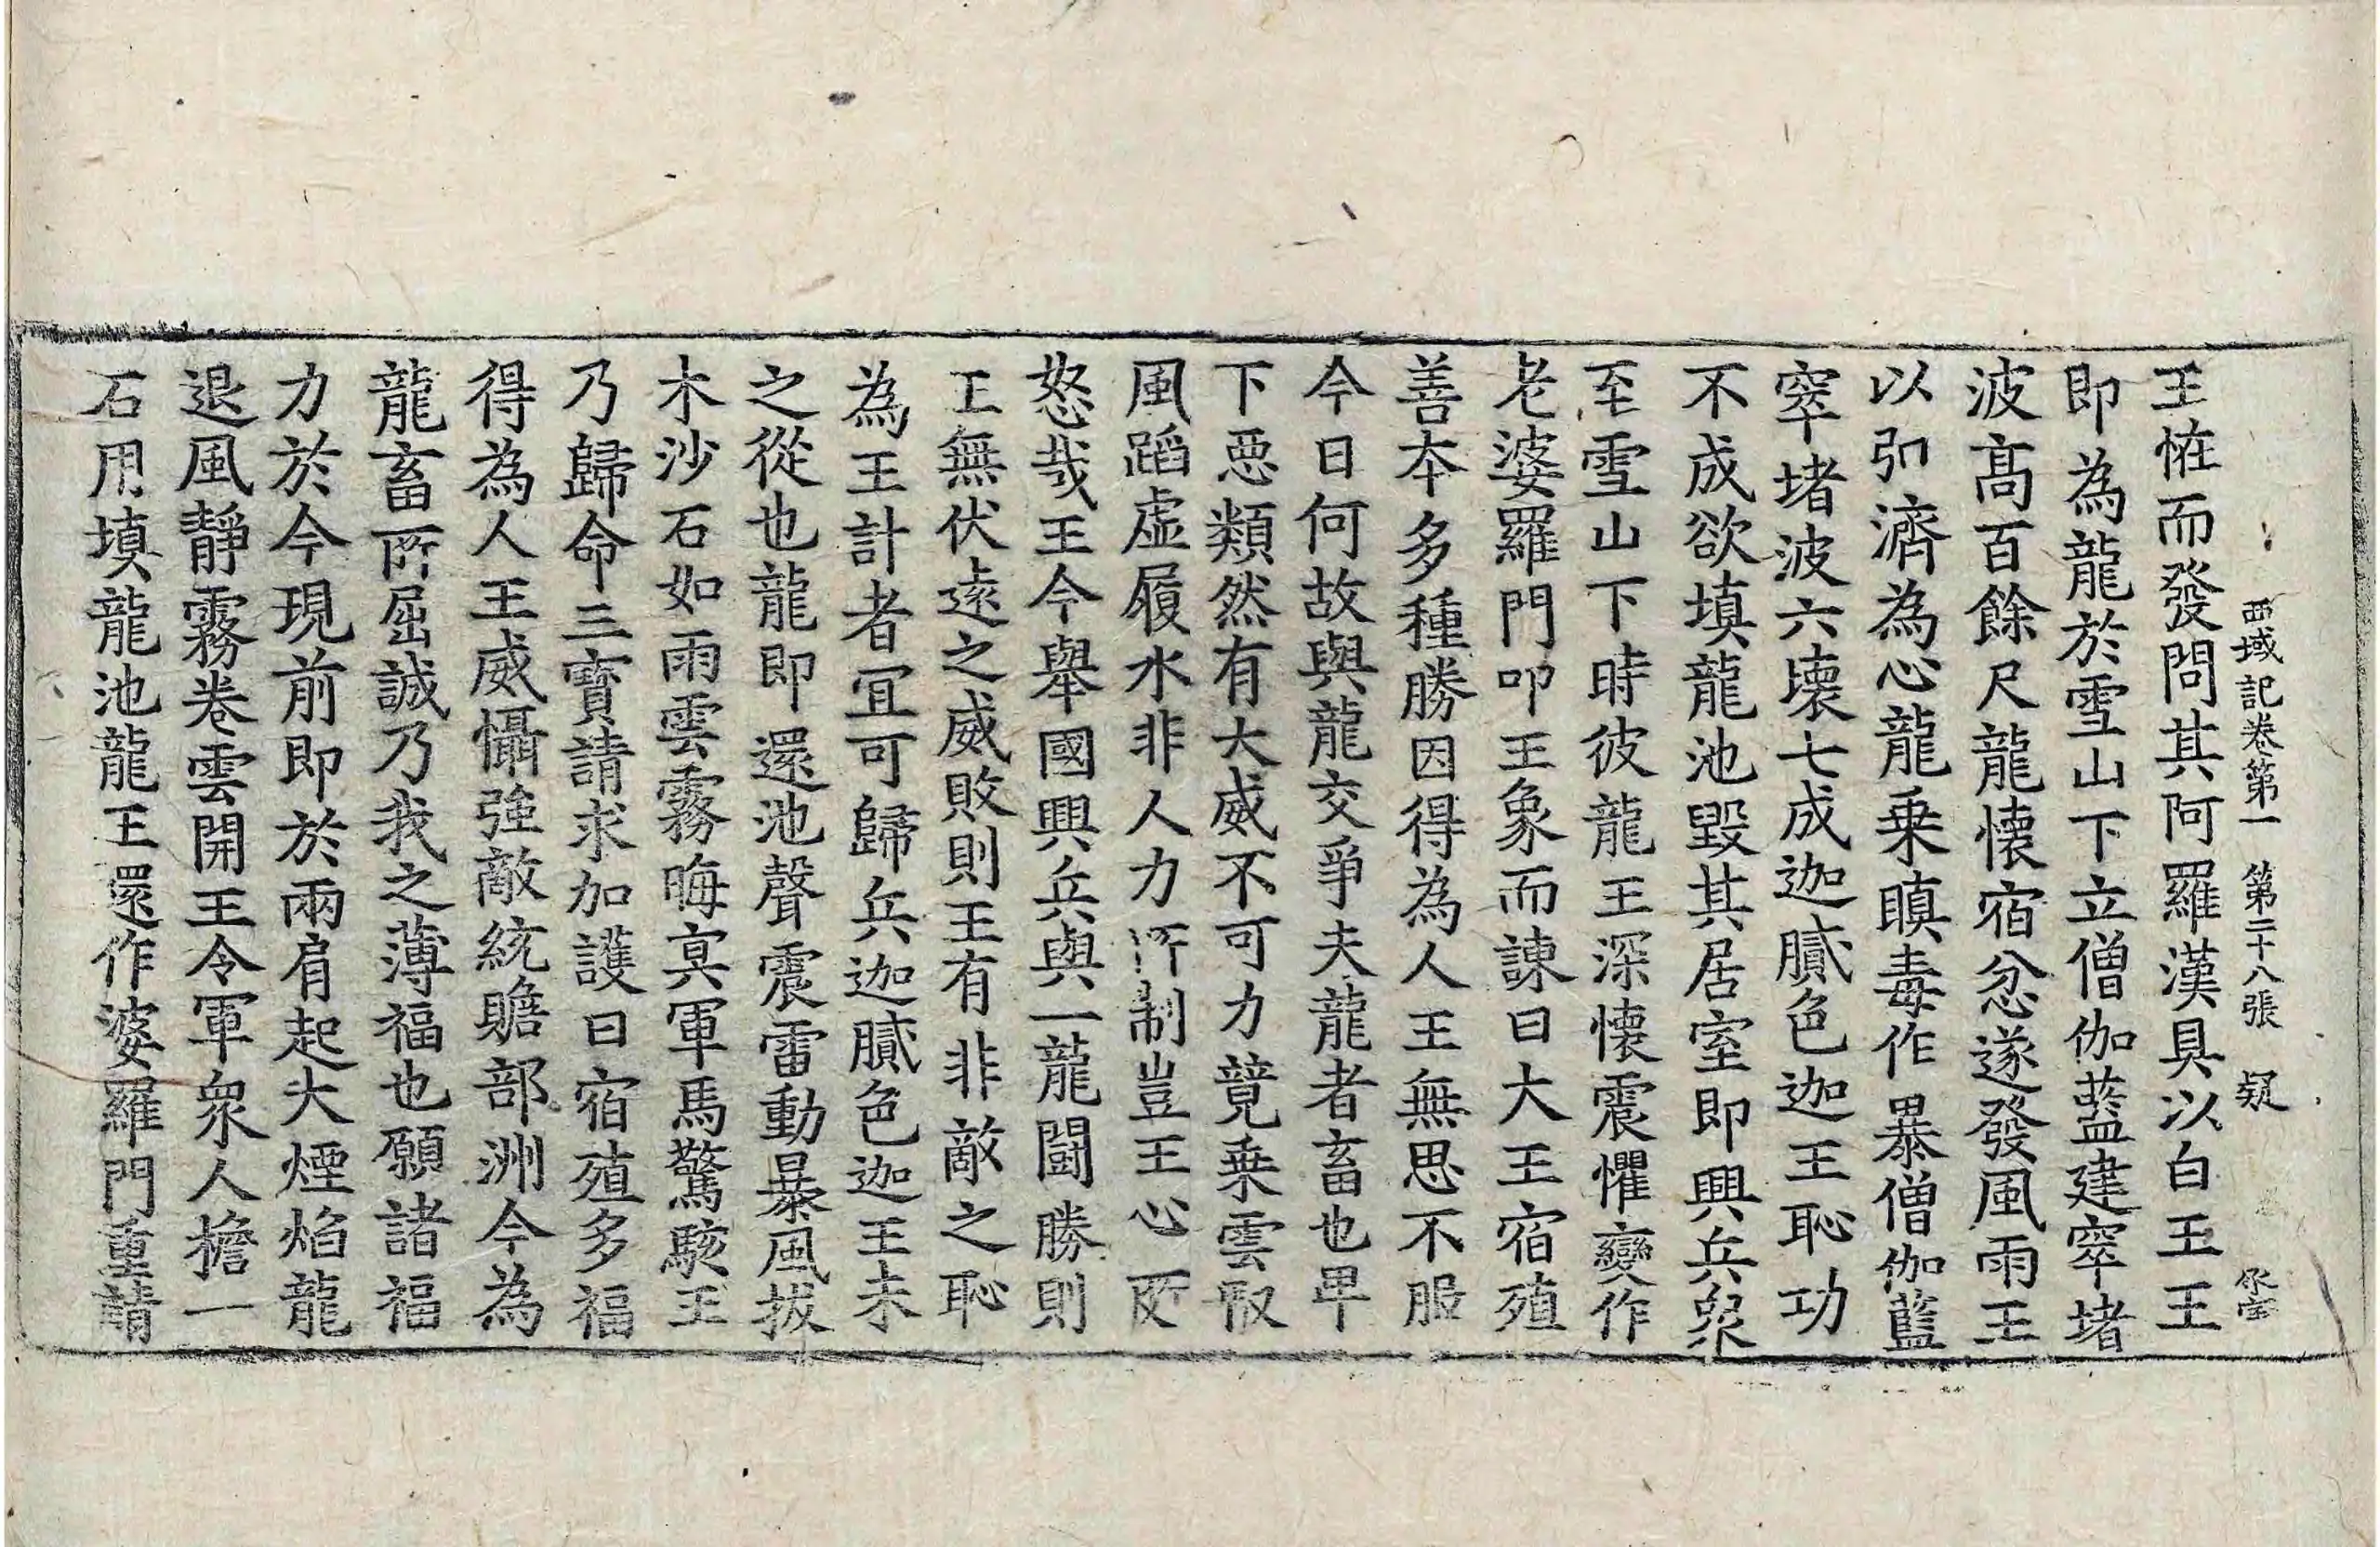 西域記卷第一 第二十八張 疑
王恠而發問其阿羅漢具以白王王
即為龍於雪山下立僧伽藍建窣堵
波髙百餘尺龍懷宿忿遂發風雨王
以弘濟為心龍乗瞋毒作暴僧伽藍
窣堵波六壞七成迦膩色迦王恥功
不成欲填龍池毀其居室即興兵衆
至雪山下時彼龍王深懷震懼變作
老婆羅門叩王象而諫曰大王宿殖
善本多種勝因得為人王無思不服
今日何故與龍交爭夫龍者畜也卑
下惡類然有大威不可力競乗雲馭
風蹈虛履水非人力所制豈王心所
怒哉王今舉國興兵與一龍鬪勝則
王無伏遠之威敗則王有非敵之恥
為王計者宜可歸兵迦膩色迦王未
之從也龍即還池聲震雷動暴風拔
木沙石如雨雲霧晦冥軍馬驚駭王
乃歸命三寶請求加護曰宿殖多福
得為人王威懾強敵統贍部洲今為
龍畜所屈誠乃我之薄福也願諸福
力於今現前即於兩肩起大煙焰龍
退風靜霧卷雲開王令軍衆人擔一
石用填龍池龍王還作婆羅門重請